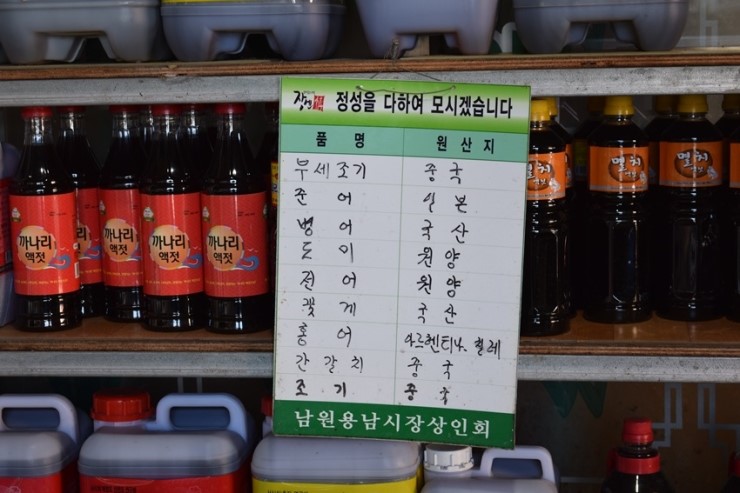 장터 정성을 다하여 모시겠습니다
품 명 원 산 지
부세조기 중국
준 어 일 본
병 어 국 산
도 미 원 양
전 어 원 양
꽃 게 국 산
홍 어 아르헨티나, 칠레
간 갈 치 중 국
조 기 중 국
남원용남시장상인회
까나리
액젓
까나리
액젓
까나리
액젓
멸치
액젓
멸치
액젓